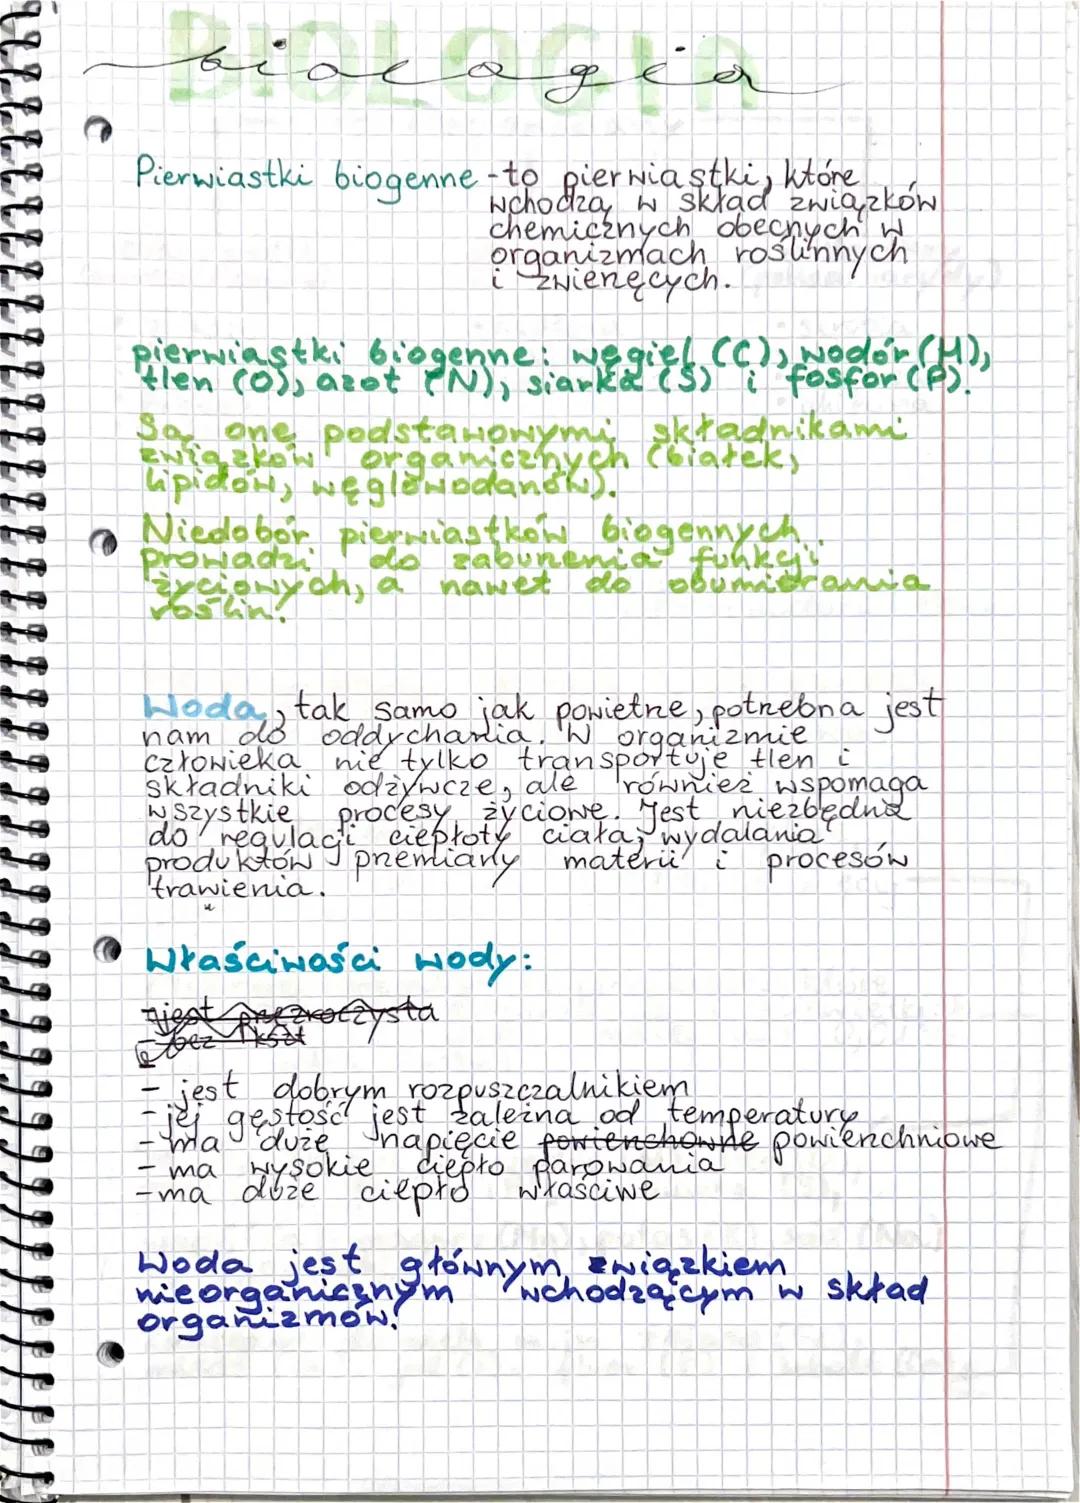 BIOLOGIA
biologia
Pierwiastki biogenne - to pierwiastki, które
wchodzą w skład związków
chemicznych obecnych w
organizmach roślinnych
i zwierzęcych.
pierwiastki biogenne: węgiel (C), wodór (H),
tlen (O), azot (N), siarka (S) i fosfor (P).
Są one podstawowymi składnikami
związków organicznych (białek,
lipidów, węglowodanów).
Niedobór pierwiastków biogennych
prowadzi do zaburzenia funkcji
życiowych, a nawet do obumierania
roślin!
Woda, tak samo jak powietrze, potrzebna jest
nam do oddychania. W organizmie
człowieka nie tylko transportuje tlen i
składniki odżywcze, ale również wspomaga
wszystkie procesy życiowe. Jest niezbędna
do regulacji ciepłoty ciała, wydalania
produktów przemiany materii i procesów
trawienia.
Właściwości wody:
jest przezroczysta
- bez
- jest dobrym rozpuszczalnikiem
- jej gęstość jest zależna od temperatury
- ma duże napięcie powierzchowne powierzchniowe
- ma wysokie ciepło parowania
- ma duże ciepło właściwe
Woda jest głównym związkiem
nieorganicznym wchodzącym w skład
organizmów!